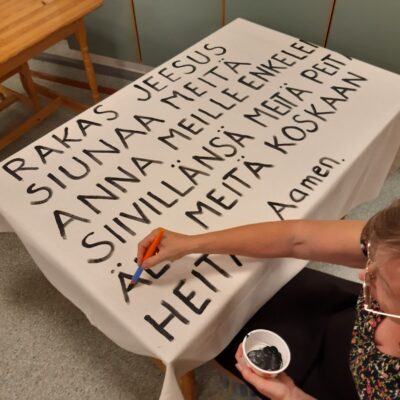 RAKAS JEESUS
SIUNAA MEITÄ
ANNA MEILLE ENKELEI
SIIVILLÄNSÄ MEITÄ PEIT
MEITÄ KOSKAAN
HEITÄ Aamen.